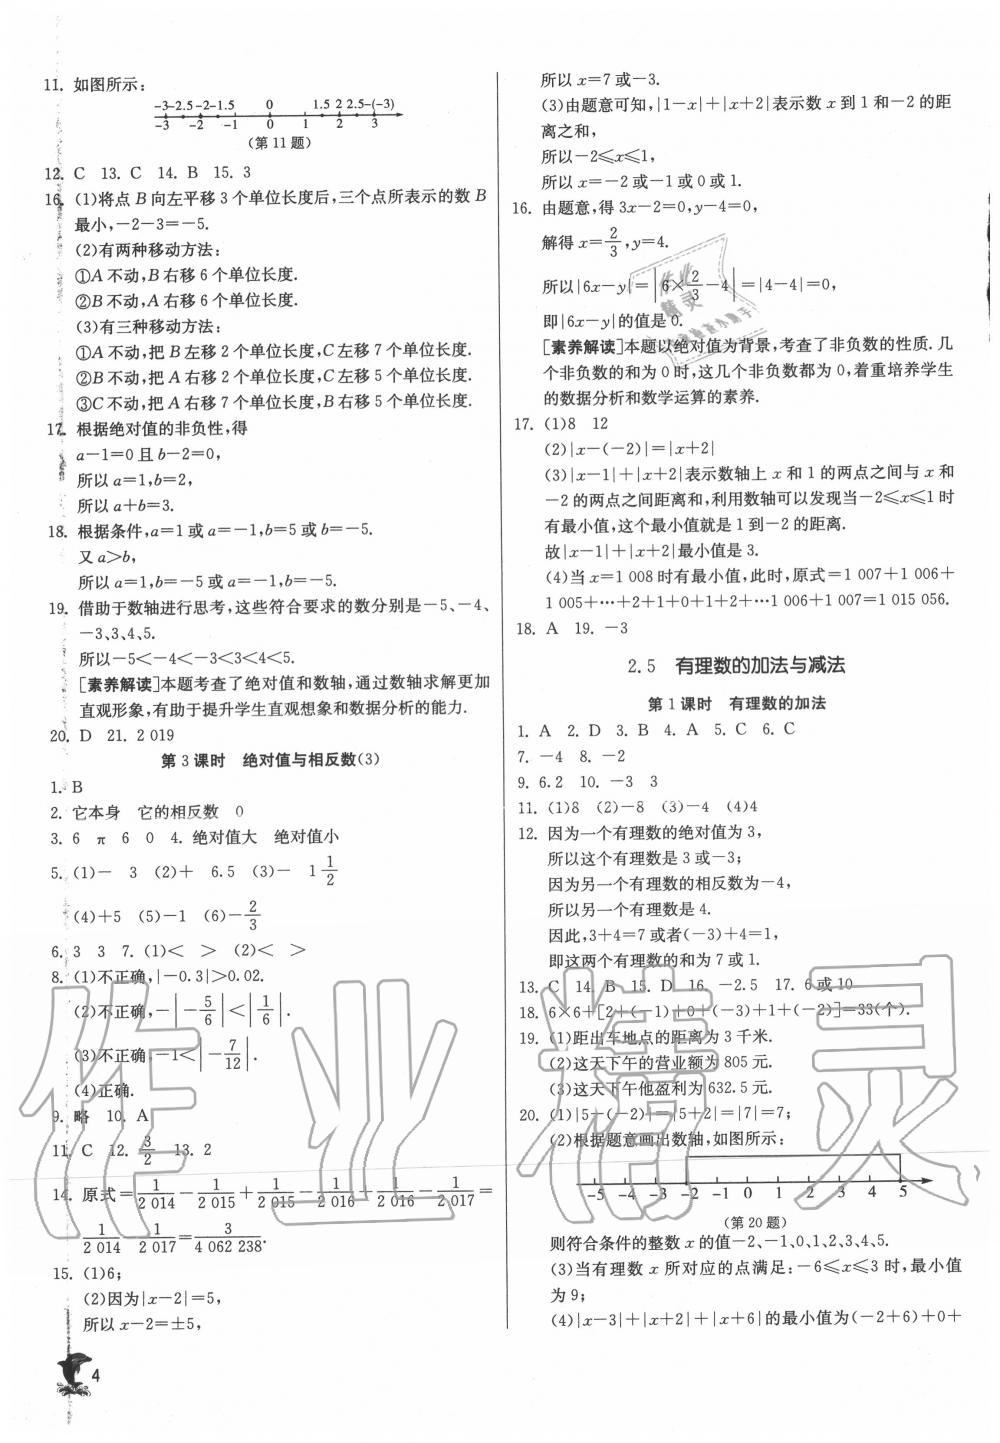 11. 如图所示:
-3-2.5-2-1.5 0 1.5 2 2.5-(-3)
-3 -2 -1 0 1 2 3
(第11题)
12. C 13. C 14. B 15. 3
16. (1)将点 B 向左平移 3 个单位长度后,三个点所表示的数 B
最小,-2-3=-5.
(2)有两种移动方法:
①A 不动,B 右移 6 个单位长度.
②B 不动,A 右移 6 个单位长度.
(3)有三种移动方法:
①A 不动,把 B 左移 2 个单位长度,C 左移 7 个单位长度.
②B 不动,把 A 右移 2 个单位长度,C 左移 5 个单位长度.
③C 不动,把 A 右移 7 个单位长度,B 右移 5 个单位长度.
17. 根据绝对值的非负性,得
a-1=0 且 b-2=0,
所以 a=1,b=2,
所以 a+b=3.
18. 根据条件,a=1 或 a=-1,b=5 或 b=-5.
又 a>b,
所以 a=1,b=-5 或 a=-1,b=-5.
19. 借助于数轴进行思考,这些符合要求的数分别是-5、-4、
-3、3、4、5.
所以-5<-4<-3<3<4<5.
[素养解读]本题考查了绝对值和数轴,通过数轴求解更加
直观形象,有助于提升学生直观想象和数据分析的能力.
20. D 21. 2 019
第 3 课时 绝对值与相反数(3)
1. B
2. 它本身 它的相反数 0
3. 6 π 6 0 4. 绝对值大 绝对值小
5. (1)- 3 (2)+ 6.5 (3)- 1 1/2
(4)+5 (5)-1 (6)-2/3
6. 3 3 7. (1)< > (2)< >
8. (1)不正确,|-0.3|>0.02.
(2)不正确,-|-5/6|<|1/6|.
(3)不正确,-1<|-7/12|.
(4)正确.
9. 略 10. A
11. C 12. 3/2 13. 2
14. 原式=1/2 014-1/2 015+1/2 015-1/2 016+1/2 016-1/2 017=
1/2 014 - 1/2 017=3/4 062 238.
15. (1)6;
(2)因为|x-2|=5,
所以 x-2=±5,
4
所以 x=7 或-3.
(3)由题意可知,|1-x|+|x+2|表示数 x 到 1 和-2 的距
离之和,
所以-2⩽x⩽1,
所以 x=-2 或-1 或 0 或 1.
16. 由题意,得 3x-2=0,y-4=0,
解得 x=2/3,y=4.
所以|6x-y|=|6×2/3-4|=|4-4|=0,
即|6x-y|的值是 0.
[素养解读]本题以绝对值为背景,考查了非负数的性质.几
个非负数的和为 0 时,这几个非负数都为 0,着重培养学生
的数据分析和数学运算的素养.
17. (1)8 12
(2)|x-(-2)|=|x+2|
(3)|x-1|+|x+2|表示数轴上 x 和 1 的两点之间与 x 和
-2 的两点之间距离和,利用数轴可以发现当-2⩽x⩽1 时
有最小值,这个最小值就是 1 到-2 的距离.
故|x-1|+|x+2|最小值是 3.
(4)当 x=1 008 时有最小值,此时,原式=1 007+1 006+
1 005+…+2+1+0+1+2+…1 006+1 007=1 015 056.
18. A 19. -3
2.5 有理数的加法与减法
第 1 课时 有理数的加法
1. A 2. D 3. B 4. A 5. C 6. C
7. -4 8. -2
9. 6.2 10. -3 3
11. (1)8 (2)-8 (3)-4 (4)4
12. 因为一个有理数的绝对值为 3,
所以这个有理数是 3 或-3;
因为另一个有理数的相反数为-4,
所以另一个有理数是 4.
因此,3+4=7 或者(-3)+4=1,
即这两个有理数的和为 7 或 1.
13. C 14. B 15. D 16. -2.5 17. 6 或 10
18. 6×6+[2+(-1)+0+(-3)+1+(-2)]=33(个).
19. (1)距出车地点的距离为 3 千米.
(2)这天下午的营业额为 805 元.
(3)这天下午他盈利为 632.5 元.
20. (1)|5-(-2)=|5+2|=|7|=7;
(2)根据题意画出数轴,如图所示:
-5 -4 -3 -2 -1 0 1 2 3 4 5
(第 20 题)
则符合条件的整数 x 的值-2、-1、0、1、2、3、4、5.
(3)当有理数 x 所对应的点满足:-6⩽x⩽3 时,最小值
为 9;
(4)|x-3|+|x+2|+|x+6|的最小值为(-2+6)+0+
作业精灵